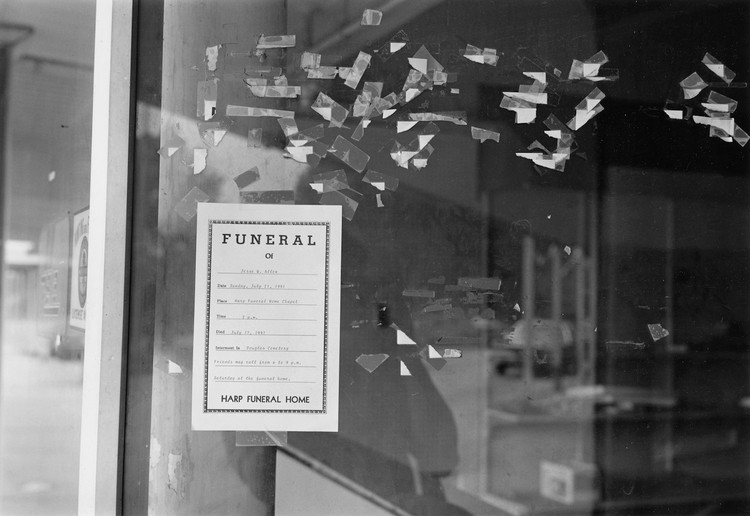 FUNERAL
OF
Date Sunday, July
Place Harp Funeral Home Chapel
Time 2 p.m.
Died July
Interment In Cemetery
Friends may call from
Saturday at the funeral home.
HARP FUNERAL HOME